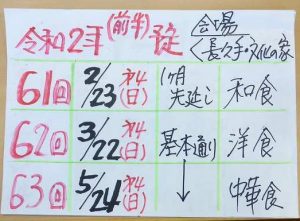 令和2年(前半)予定
会場
長久手・文化の家
61回 2/23 才4(日) 1ヶ月先延し 和食
62回 3/22 才4(日) 基本通り 洋食
63回 5/24 才4(日) ↓ 中華食